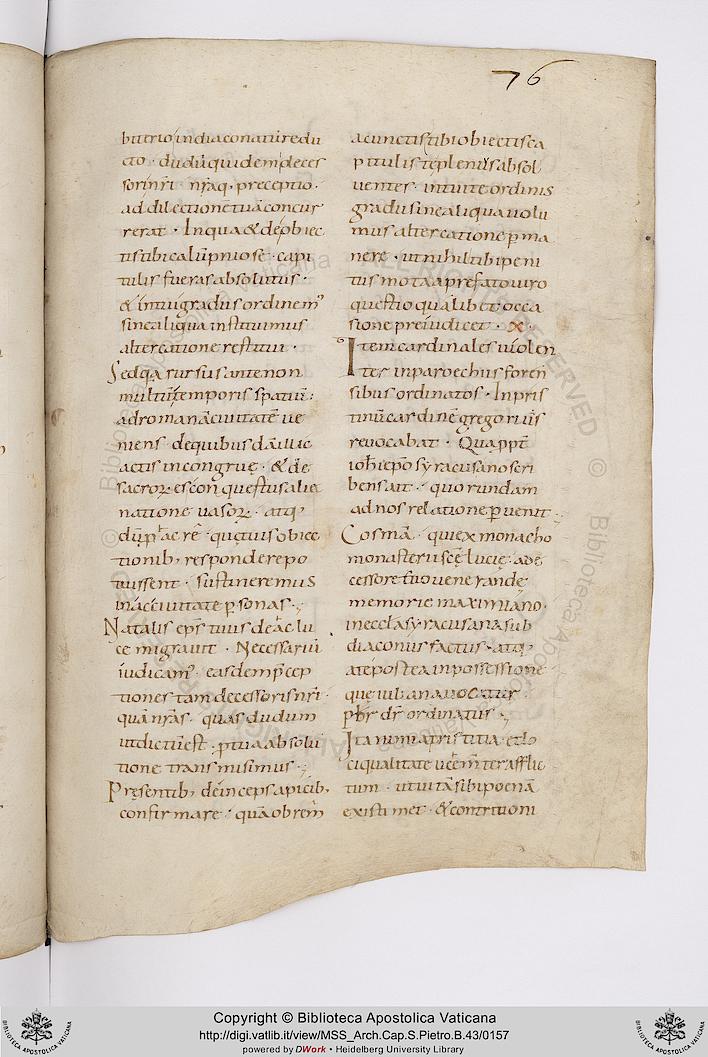 76
bitrio in diaconatu redu
cto · dudu quidem deces
soris nri nraq · preceptio ·
ad dilectione tua concur
rerat · In qua & de obiec
tis tibi caliipniose · capi
tulis fueras absolutus ·
& in tui gradus ordinem
sine aliqua institumus
altercatione restitui ·
Sed qa rursus ante non
multu temporis spatiu ·
ad romana civitate ve
niens · de quibusda illic
actis incongrue · & de
sacror · &scon questus alie
natione vasor · atq
du phac re · qui tuis obiec
tionib, respondere po
tuissent · sustineremus
in ac civitate psonas ·
Natalis eps tuus de ac lu
ce migravit · Necessariu
iudicam · easdem pcep
tiones tam decessoris nri ·
qua nras · quas dudum
ut dictu est · p tua absolu
tione transmisimus ·
Presentib, deinceps apicib,
confirmare · qua ob rem
a cunctis tibi obiectis ca
pitulis te plenius absol
ventes · in tui te ordinis
gradu sine aliqua volu
mus altercatione pma
nere · ut nihil tibi peni
tus mota a prefato viro
questio qualibet occa
sione preiudicet · x ·
Item cardinales violen
ter in parochiis foren
sibus ordinatos · In pris
tinu cardine gregorius
revocabat · Qua ppt
ioh epo syracusano scri
bens ait · quorundam
ad nos relatione pvenit ·
Cosma · qui ex monacho
monasterii sce lucie · a de
cessore tuo venerande
memorie maximiano ·
in eccla syracusana sub
diaconus factus · atq
ate postea in possessione
que iuliana vocatur
pbr dr ordinatus ·
Ita nimia tristitia et lo
ci qualitate vehemter afflic
tum · ut vita sibi poena
existimet · & contritioni
Copyright © Biblioteca Apostolica Vaticana
http://digi.vatlib.it/view/MSS_Arch.Cap.S.Pietro.B.43/0157
powered by DWork • Heidelberg University Library